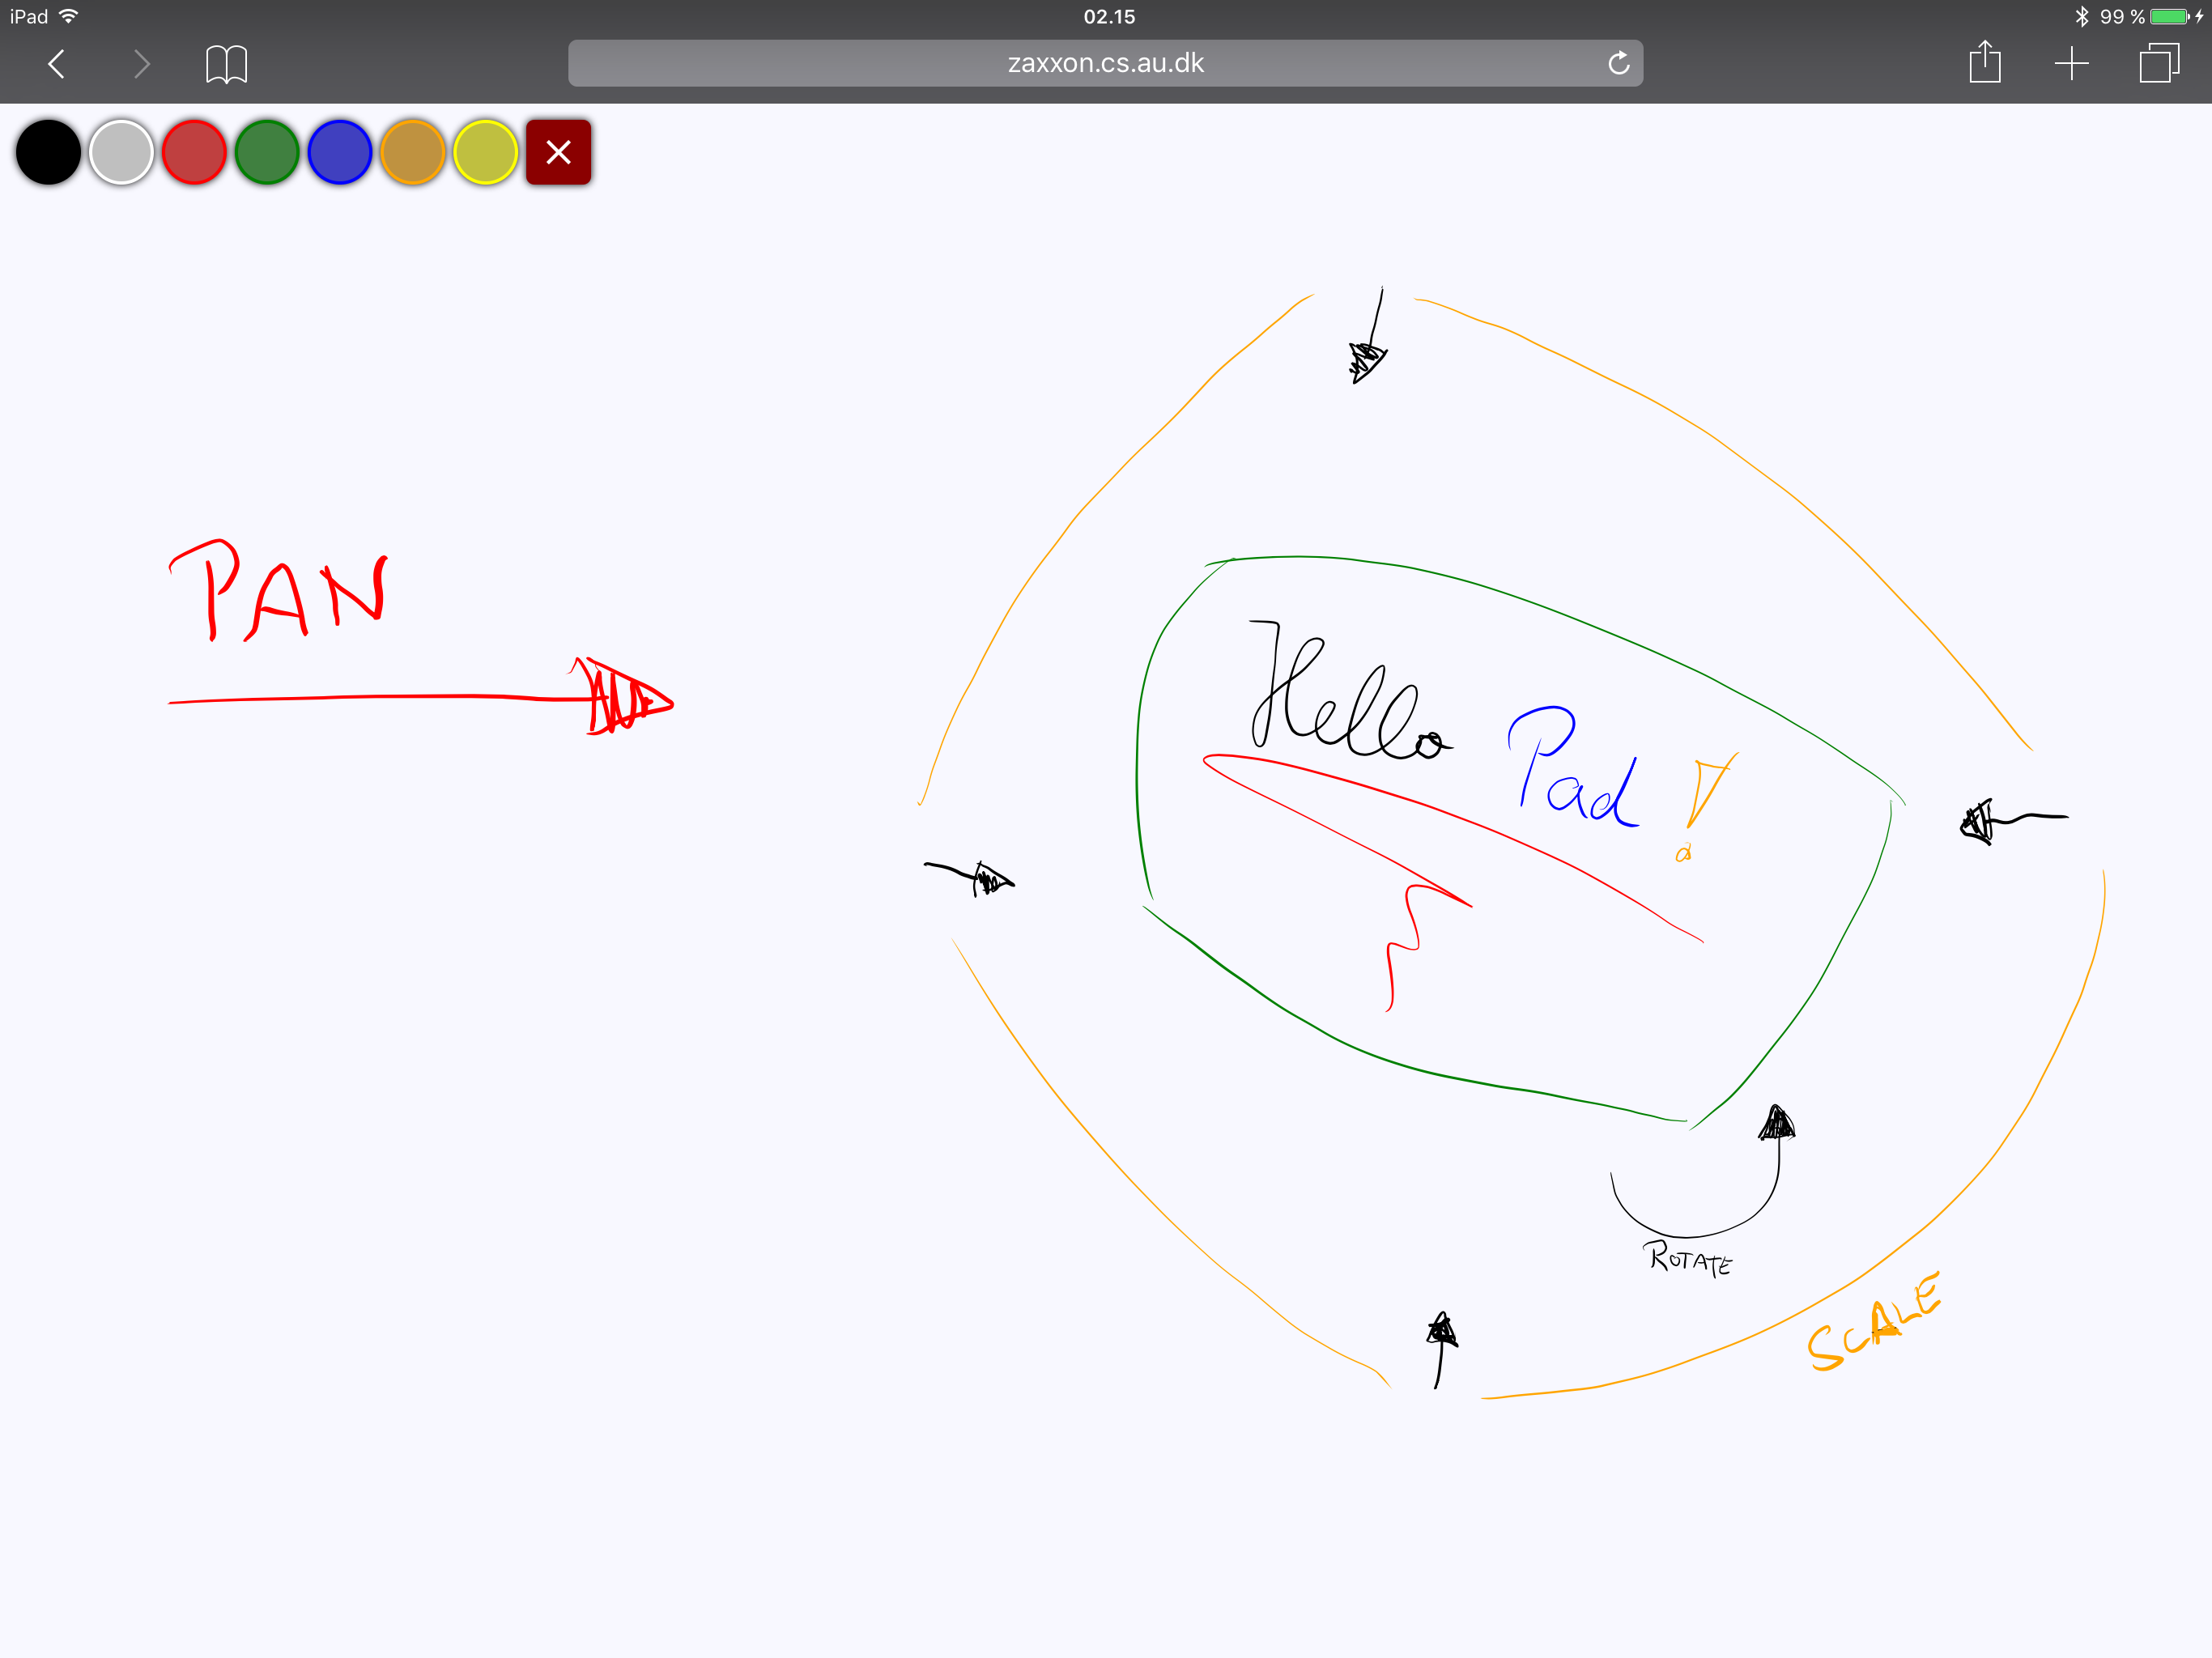 iPad 02.15 99 %
zaxxon.cs.au.dk
PAN
Hello Pad !
ROTATE
SCALE